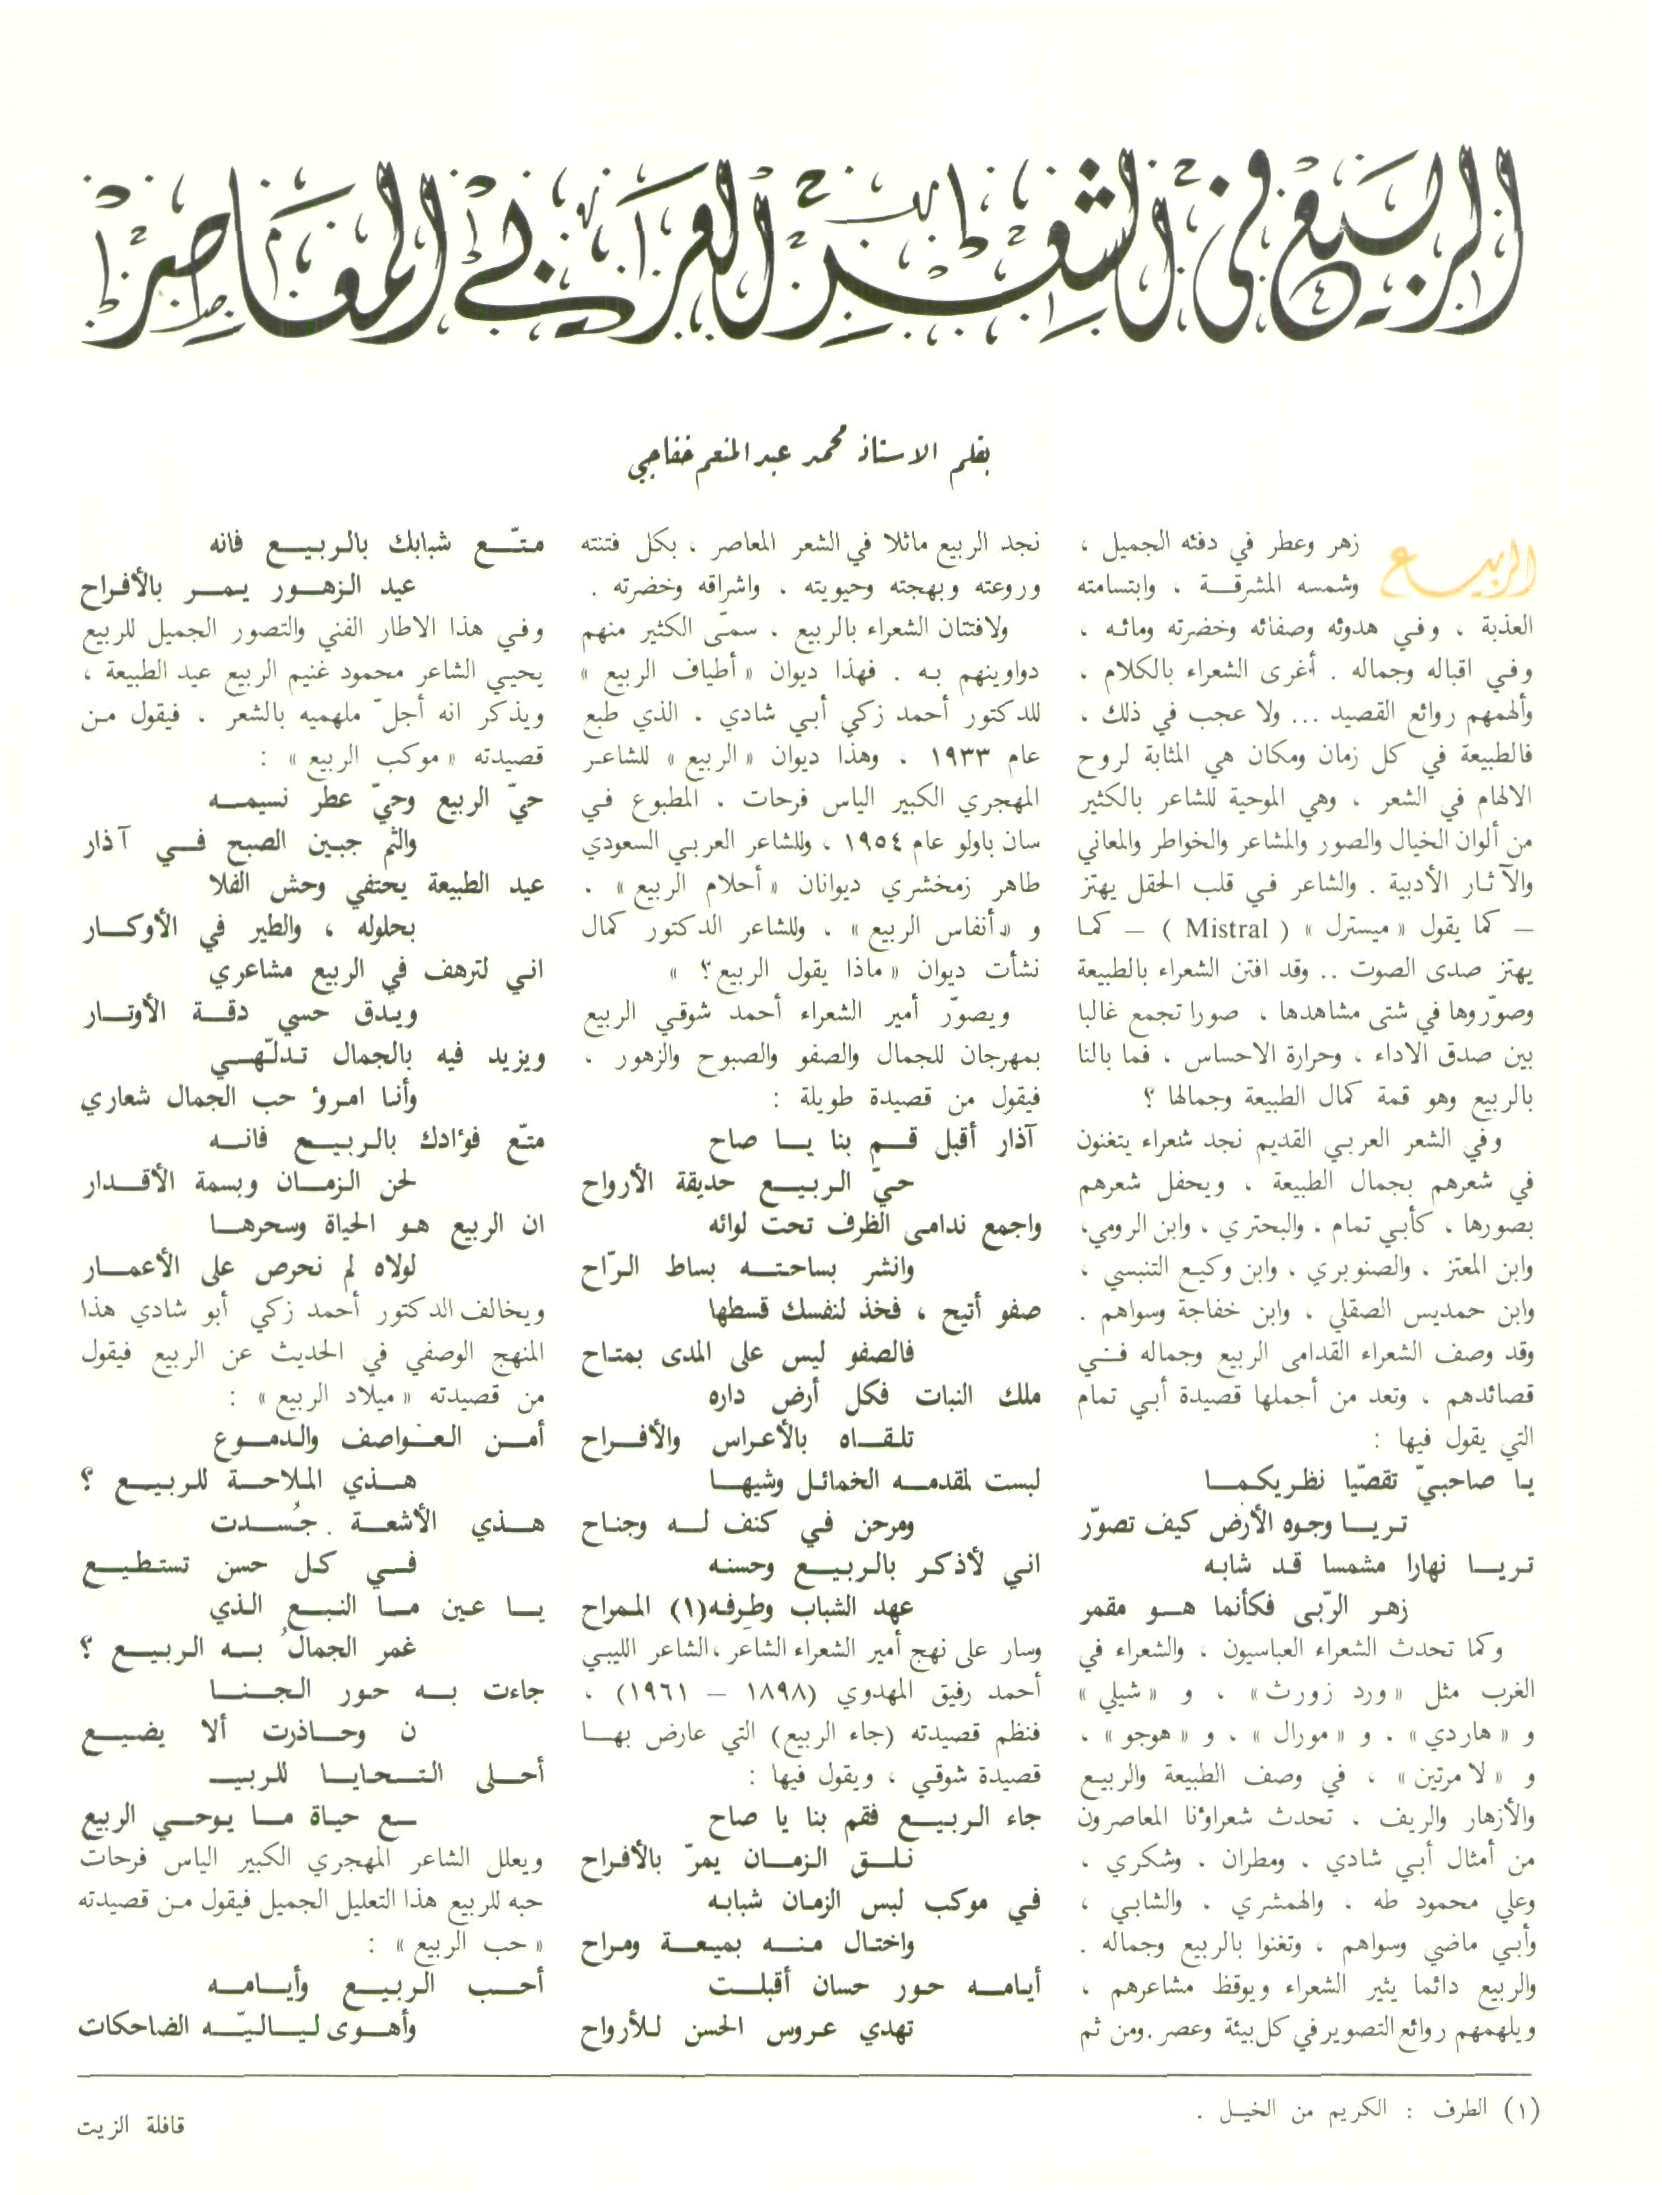 الربيع في الشعر العربي المعاصر
بقلم الاستاذ محمد عبد المنعم خفاجي
الربيع زهر وعطر في دفئه الجميل ،
وشمسه المشرقة ، وابتسامته
العذبة ، وفي هدوئه وصفائه وخضرته ومائه ،
وفي اقباله وجماله . أغرى الشعراء بالكلام ،
وألهمهم روائع القصيد ... ولا عجب في ذلك ،
فالطبيعة في كل زمان ومكان هي المثابة لروح
الالهام في الشعر ، وهي الموحية للشاعر بالكثير
من ألوان الخيال والصور والمشاعر والخواطر والمعاني
والآثار الأدبية . والشاعر في قلب الحقل يهتز
— كما يقول « ميسترل » ( Mistral ) — كما
يهتز صدى الصوت .. وقد افتن الشعراء بالطبيعة
وصوّروها في شتى مشاهدها ، صورا تجمع غالبا
بين صدق الاداء ، وحرارة الاحساس ، فما بالنا
بالربيع وهو قمة كمال الطبيعة وجمالها ؟
وفي الشعر العربي القديم نجد شعراء يتغنون
في شعرهم بجمال الطبيعة ، ويحفل شعرهم
بصورها ، كأبي تمام ، والبحتري ، وابن الرومي،
وابن المعتز ، والصنوبري ، وابن وكيع التنيسي ،
وابن حمديس الصقلي ، وابن خفاجة وسواهم .
وقد وصف الشعراء القدامى الربيع وجماله في
قصائدهم ، وتعد من أجملها قصيدة أبي تمام
التي يقول فيها :
يا صاحبيّ تقصّيا نظريكما
تريا وجوه الأرض كيف تصوّر
تريا نهارا مشمسا قد شابه
زهر الرّبى فكأنما هو مقمر
وكما تحدث الشعراء العباسيون ، والشعراء في
الغرب مثل « ورد زورث » ، و « شيلي »
و « هاردي » ، و « مورال » ، و « هوجو » ،
و « لامرتين » ، في وصف الطبيعة والربيع
والأزهار والريف ، تحدث شعراؤنا المعاصرون
من أمثال أبي شادي ، ومطران ، وشكري ،
وعلي محمود طه ، والهمشري ، والشابي ،
وأبي ماضي وسواهم ، وتغنوا بالربيع وجماله .
والربيع دائما يثير الشعراء ويوقظ مشاعرهم ،
ويلهمهم روائع التصوير في كل بيئة وعصر .ومن ثم
نجد الربيع ماثلا في الشعر المعاصر ، بكل فتنته
وروعته وبهجته وحيويته ، واشراقه وخضرته .
ولافتتان الشعراء بالربيع ، سمّى الكثير منهم
دواوينهم به . فهذا ديوان « أطياف الربيع »
للدكتور أحمد زكي أبي شادي ، الذي طبع
عام ١٩٣٣ ، وهذا ديوان « الربيع » للشاعر
المهجري الكبير الياس فرحات ، المطبوع في
سان باولو عام ١٩٥٤ ، وللشاعر العربي السعودي
طاهر زمخشري ديوانان « أحلام الربيع » ،
و « أنفاس الربيع » ، وللشاعر الدكتور كمال
نشأت ديوان « ماذا يقول الربيع؟ »
ويصوّر أمير الشعراء أحمد شوقي الربيع
بمهرجان للجمال والصفو والصبوح والزهور ،
فيقول من قصيدة طويلة :
آذار أقبل قم بنا يا صاح
حيّ الربيع حديقة الأرواح
واجمع ندامى الظرف تحت لوائه
وانشر بساحته بساط الرّاح
صفو أتيح ، فخذ لنفسك قسطها
فالصفو ليس على المدى بمتاح
ملك النبات فكل أرض داره
تلقاه بالأعراس والأفراح
لبست لمقدمه الخمائل وشيها
ومرحن في كنف له وجناح
اني لأذكر بالربيع وحسنه
عهد الشباب وطِرفه(١) الممراح
وسار على نهج أمير الشعراء الشاعر ،الشاعر الليبي
أحمد رفيق المهدوي (١٨٩٨ — ١٩٦١) ،
فنظم قصيدته (جاء الربيع) التي عارض بها
قصيدة شوقي ، ويقول فيها :
جاء الربيع فقم بنا يا صاح
نلق الزمان يمرّ بالأفراح
في موكب لبس الزمان شبابه
واختال منه بميعة ومراح
أيامه حور حسان أقبلت
تهدي عروس الحسن للأرواح
متّع شبابك بالربيع فانه
عيد الزهور يمر بالأفراح
وفي هذا الاطار الفني والتصور الجميل للربيع
يحيي الشاعر محمود غنيم الربيع عيد الطبيعة ،
ويذكر انه أجلّ ملهميه بالشعر ، فيقول من
قصيدته « موكب الربيع » :
حيّ الربيع وحيّ عطر نسيمه
والثم جبين الصبح في آذار
عيد الطبيعة يحتفي وحش الفلا
بحلوله ، والطير في الأوكار
اني لترهف في الربيع مشاعري
ويدق حسي دقة الأوتار
ويزيد فيه بالجمال تدلّهي
وأنا امرؤ حب الجمال شعاري
متّع فؤادك بالربيع فانه
لحن الزمان وبسمة الأقدار
ان الربيع هو الحياة وسحرها
لولاه لم نحرص على الأعمار
ويخالف الدكتور أحمد زكي أبو شادي هذا
المنهج الوصفي في الحديث عن الربيع فيقول
من قصيدته « ميلاد الربيع » :
أمن العواصف والدموع
هذي الملاحة للربيع ؟
هذي الأشعة جُسدت
في كل حسن تستطيع
يا عين ما النبع الذي
غمر الجمالُ به الربيع ؟
جاءت به حور الجنا
ن وحاذرت ألا يضيع
أحلى التحايا للربيـ
ـع حياة ما يوحي الربيع
ويعلل الشاعر المهجري الكبير الياس فرحات
حبه للربيع هذا التعليل الجميل فيقول من قصيدته
« حب الربيع » :
أحب الربيع وأيامه
وأهوى لياليّه الضاحكات
(١) الطرف : الكريم من الخيل .
قافلة الزيت